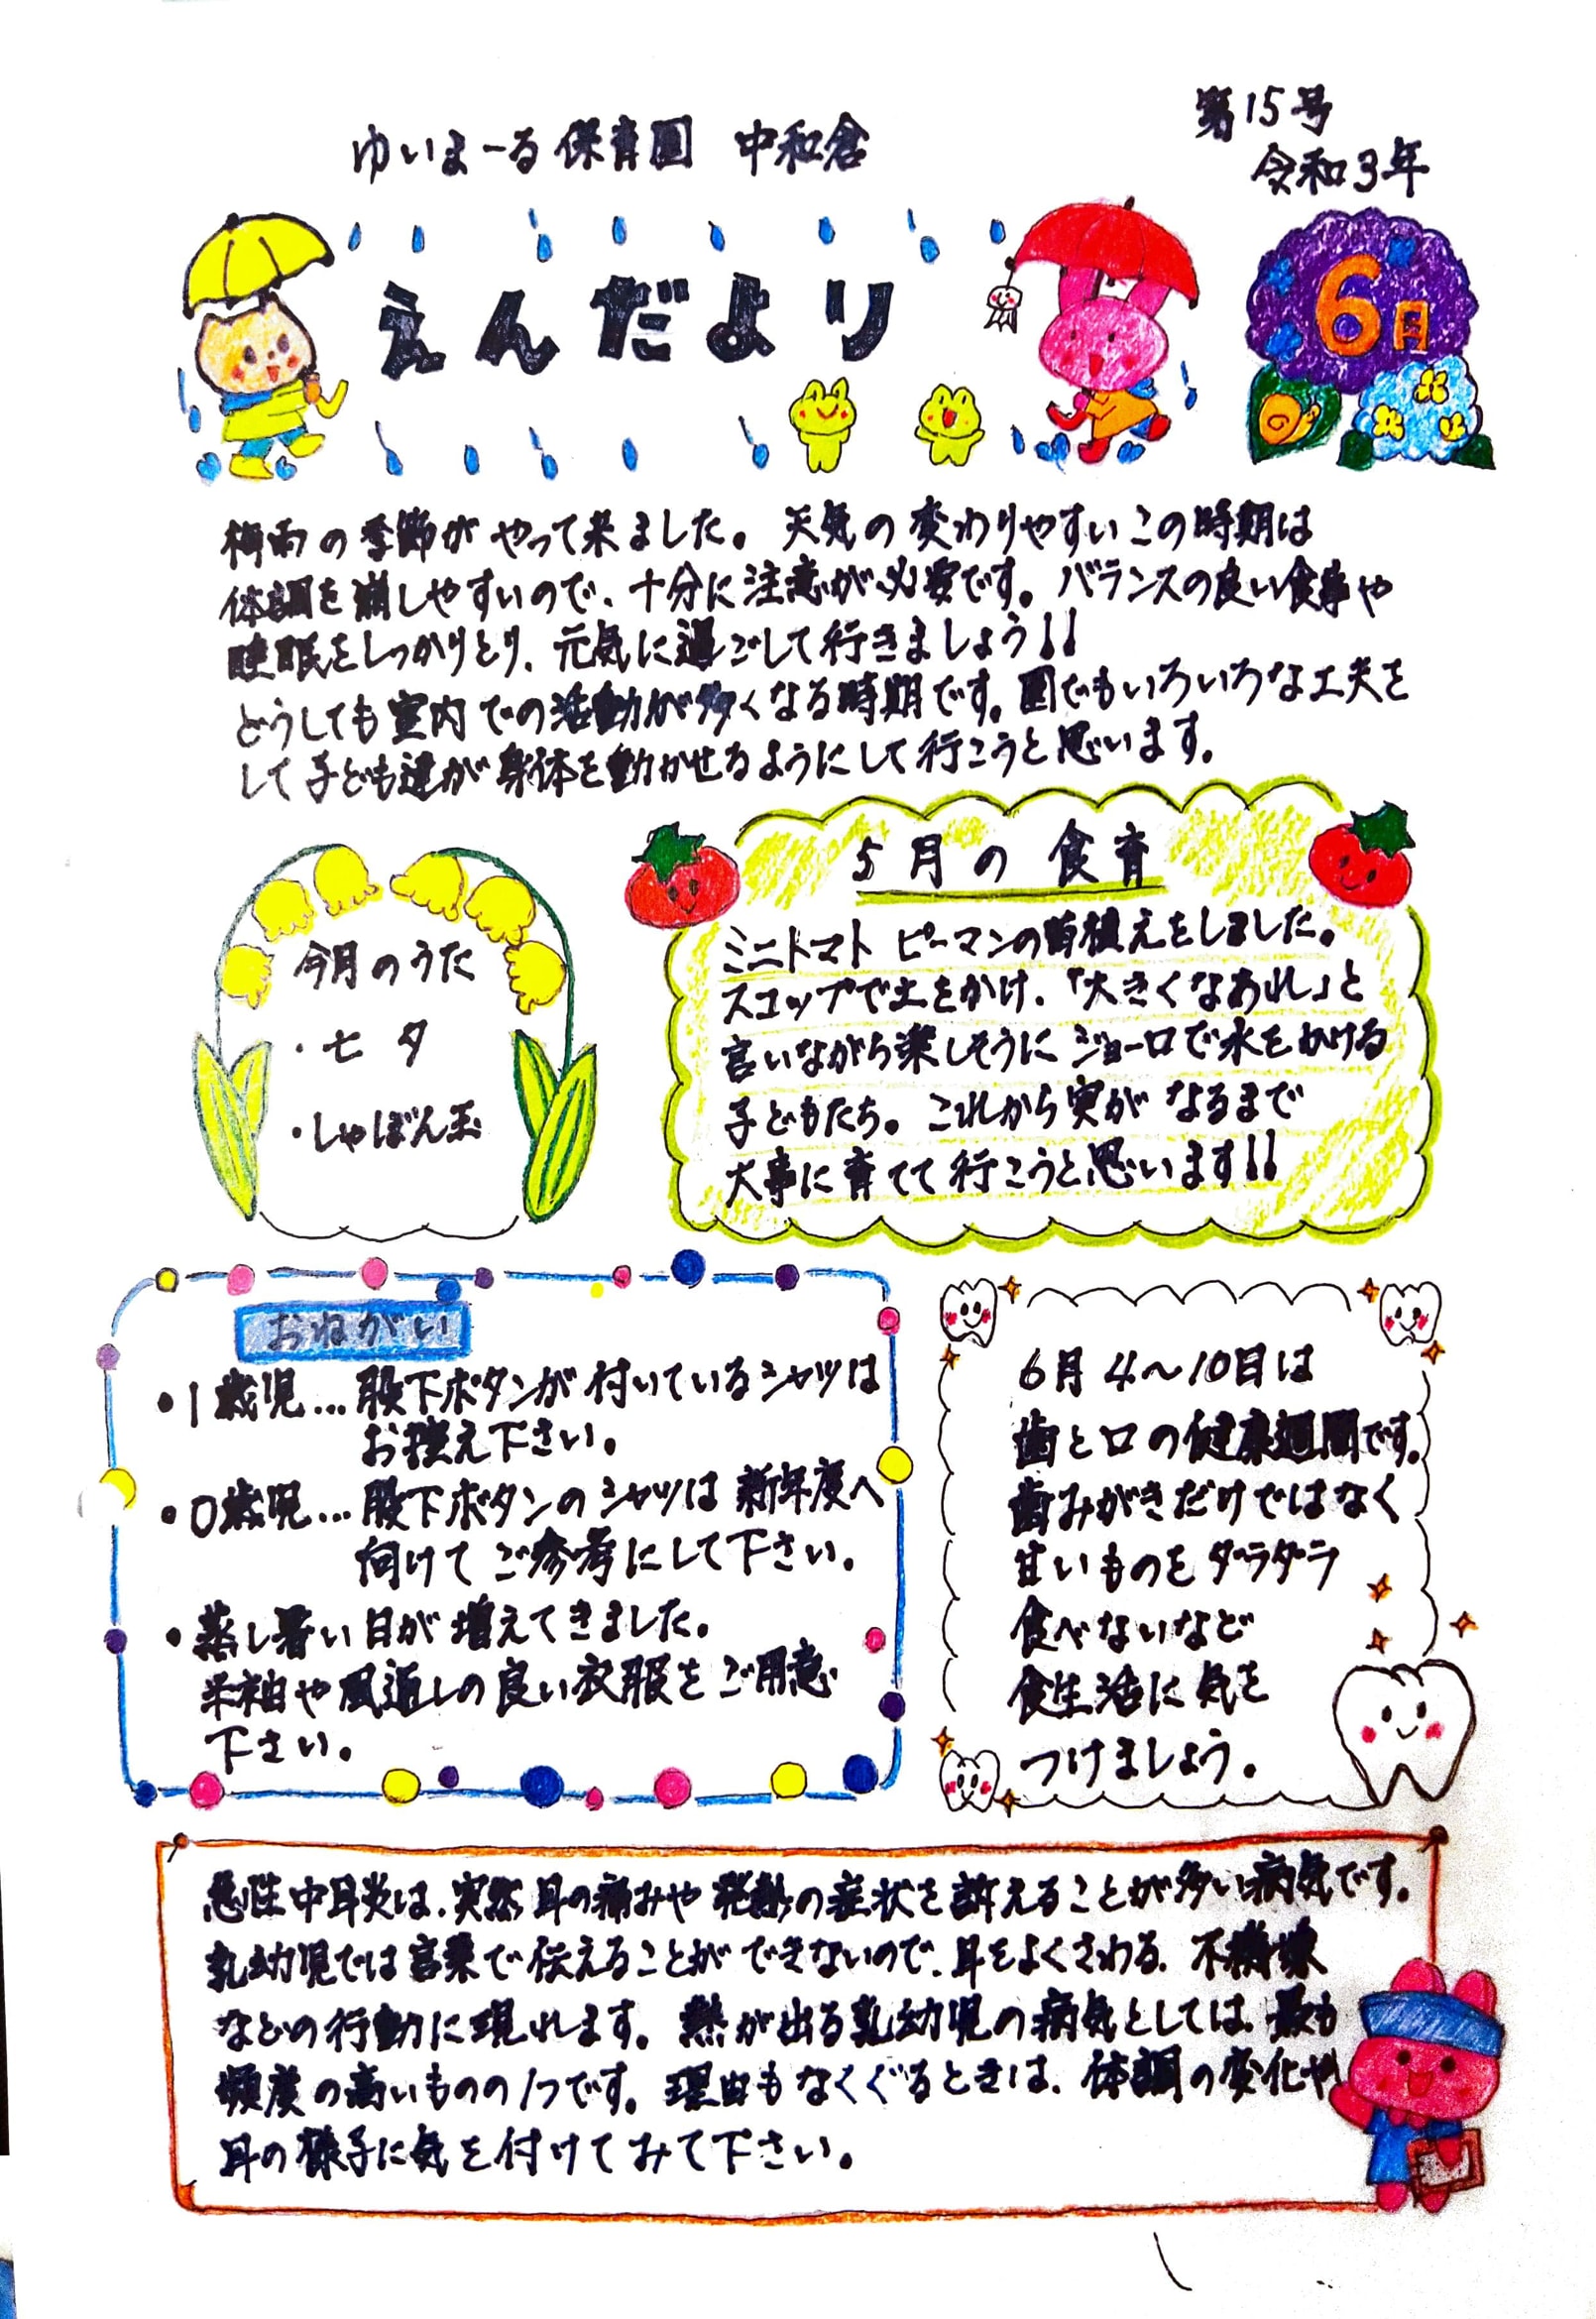 ゆいまーる保育園 中和倉
第15号
令和3年
えんだより
6月
梅雨の季節がやって来ました。天気の変わりやすいこの時期は
体調を崩しやすいので、十分に注意が必要です。バランスの良い食事や
睡眠をしっかりとり、元気に過ごして行きましょう!!
どうしても室内での活動が多くなる時期です。園でもいろいろな工夫を
して子ども達が身体を動かせるようにして行こうと思います。
今月のうた
・七夕
・しゃぼん玉
5月の食育
ミニトマト ピーマンの苗植えをしました。
スコップで土をかけ、「大きくなあれ」と
言いながら楽しそうにジョーロで水をかける
子どもたち。これから実がなるまで
大事に育てて行こうと思います!!
おねがい
・1歳児…股下ボタンが付いているシャツは
お控え下さい。
・0歳児…股下ボタンのシャツは新年度へ
向けてご参考にして下さい。
・蒸し暑い日が増えてきました。
半袖や風通しの良い衣服をご用意
下さい。
6月4～10日は
歯と口の健康週間です。
歯みがきだけではなく
甘いものをダラダラ
食べないなど
食生活に気を
つけましょう。
急性中耳炎は、突然耳の痛みや発熱の症状を訴えることが多い病気です。
乳幼児では言葉で伝えることができないので、耳をよくさわる、不機嫌
などの行動に現れます。熱が出る乳幼児の病気としては、最も
頻度の高いものの1つです。理由もなくぐるときは、体調の変化や
耳の様子に気を付けてみて下さい。